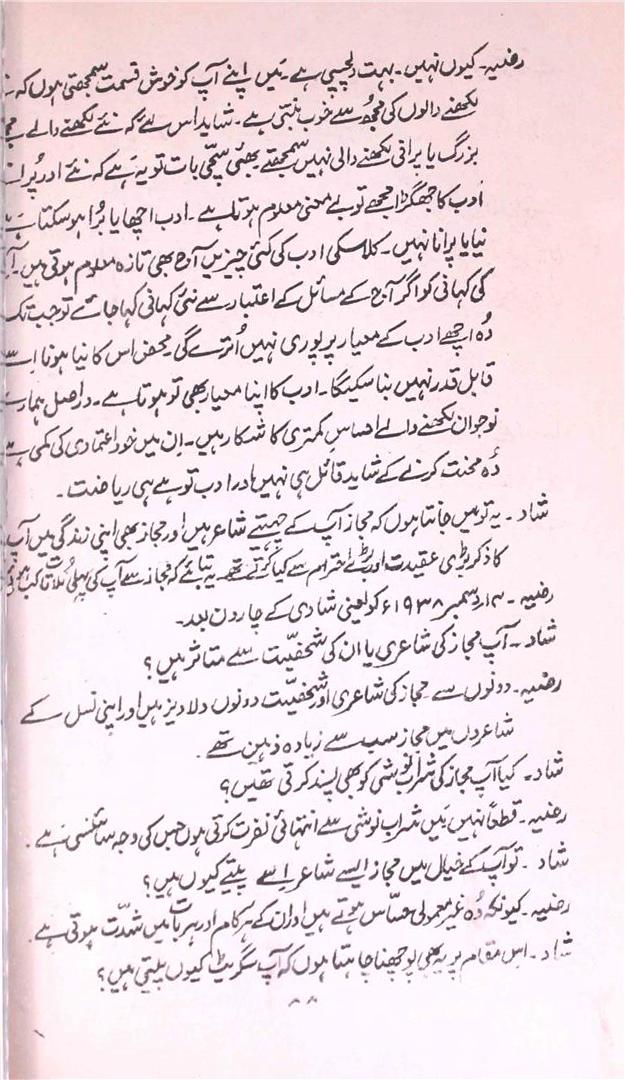 رضیہ۔ کیوں نہیں۔ بہت دلچسپی ہے۔ میں اپنے آپ کو خوش قسمت سمجھتی ہوں کہ
لکھنے والوں کی مجھ سے خوب بنتی ہے۔ شاید اس لئے کہ نئے لکھنے والے
بزرگ یا پرانی لکھنے والی نہیں سمجھتے بھئی سچی بات تو یہ ہے کہ نئے اور
ادب کا جھگڑا مجھے تو بے معنی معلوم ہوتا ہے۔ ادب اچھا یا بُرا ہو سکتا ہے
نیا یا پرانا نہیں۔ کلاسکی ادب کی کئی چیزیں آج بھی تازہ معلوم ہوتی ہیں۔
کی کہانی کو اگر آج کے مسائل کے اعتبار سے نئی کہانی کہا جائے تو جب تک
وُہ اچھے ادب کے معیار پر پوری نہیں اُترے گی محض اس کا نیا ہونا اسے
قابل قدر نہیں بنا سکیگا۔ ادب کا اپنا معیار بھی تو ہوتا ہے۔ دراصل ہمارے
نوجوان لکھنے والے احساسِ کمتری کا شکار ہیں۔ اِن میں خود اعتمادی کی کمی ہے
وُہ محنت کرنے کے شاید قائل ہی نہیں اور ادب تو ہے ہی ریاضت۔
شاد۔ یہ تو میں جانتا ہوں کہ مجاز آپ کے چہیتے شاعر ہیں اور مجاز بھی اپنی زندگی میں آپ
کا ذکر بڑی عقیدت اور بڑے احترام سے کیا کرتے تھے۔ یہ بتائیے کہ مجاز سے آپ کی پہلی ملاقات کب ہوئی
رضیہ۔ ۱۴ دسمبر ۱۹۳۸ء کو یعنی شادی کے چار دن بعد۔
شاد۔ آپ مجاز کی شاعری یا ان کی شخصیّت سے متاثر ہیں؟
رضیہ۔ دونوں سے۔ مجاز کی شاعری اور شخصیّت دونوں دلاویز ہیں اور اپنی نسل کے
شاعروں میں مجاز سب سے زیادہ ذہین تھے۔
شاد۔ کیا آپ مجاز کی شراب نوشی کو بھی پسند کرتی تھیں؟
رضیہ۔ قطعاً نہیں میں شراب نوشی سے انتہائی نفرت کرتی ہوں جس کی وجہ سائنسی ہے۔
شاد۔ تو آپ کے خیال میں مجاز ایسے شاعر اسے پیتے کیوں ہیں؟
رضیہ۔ کیونکہ وُہ غیر معمولی حسّاس ہوتے ہیں اور ان کے ہر کام اور ہر بات میں شدّت ہوتی ہے۔
شاد۔ اِس مقام پر یہ بھی پوچھنا چاہتا ہوں کہ آپ سگریٹ کیوں پیتی ہیں؟
۸۸